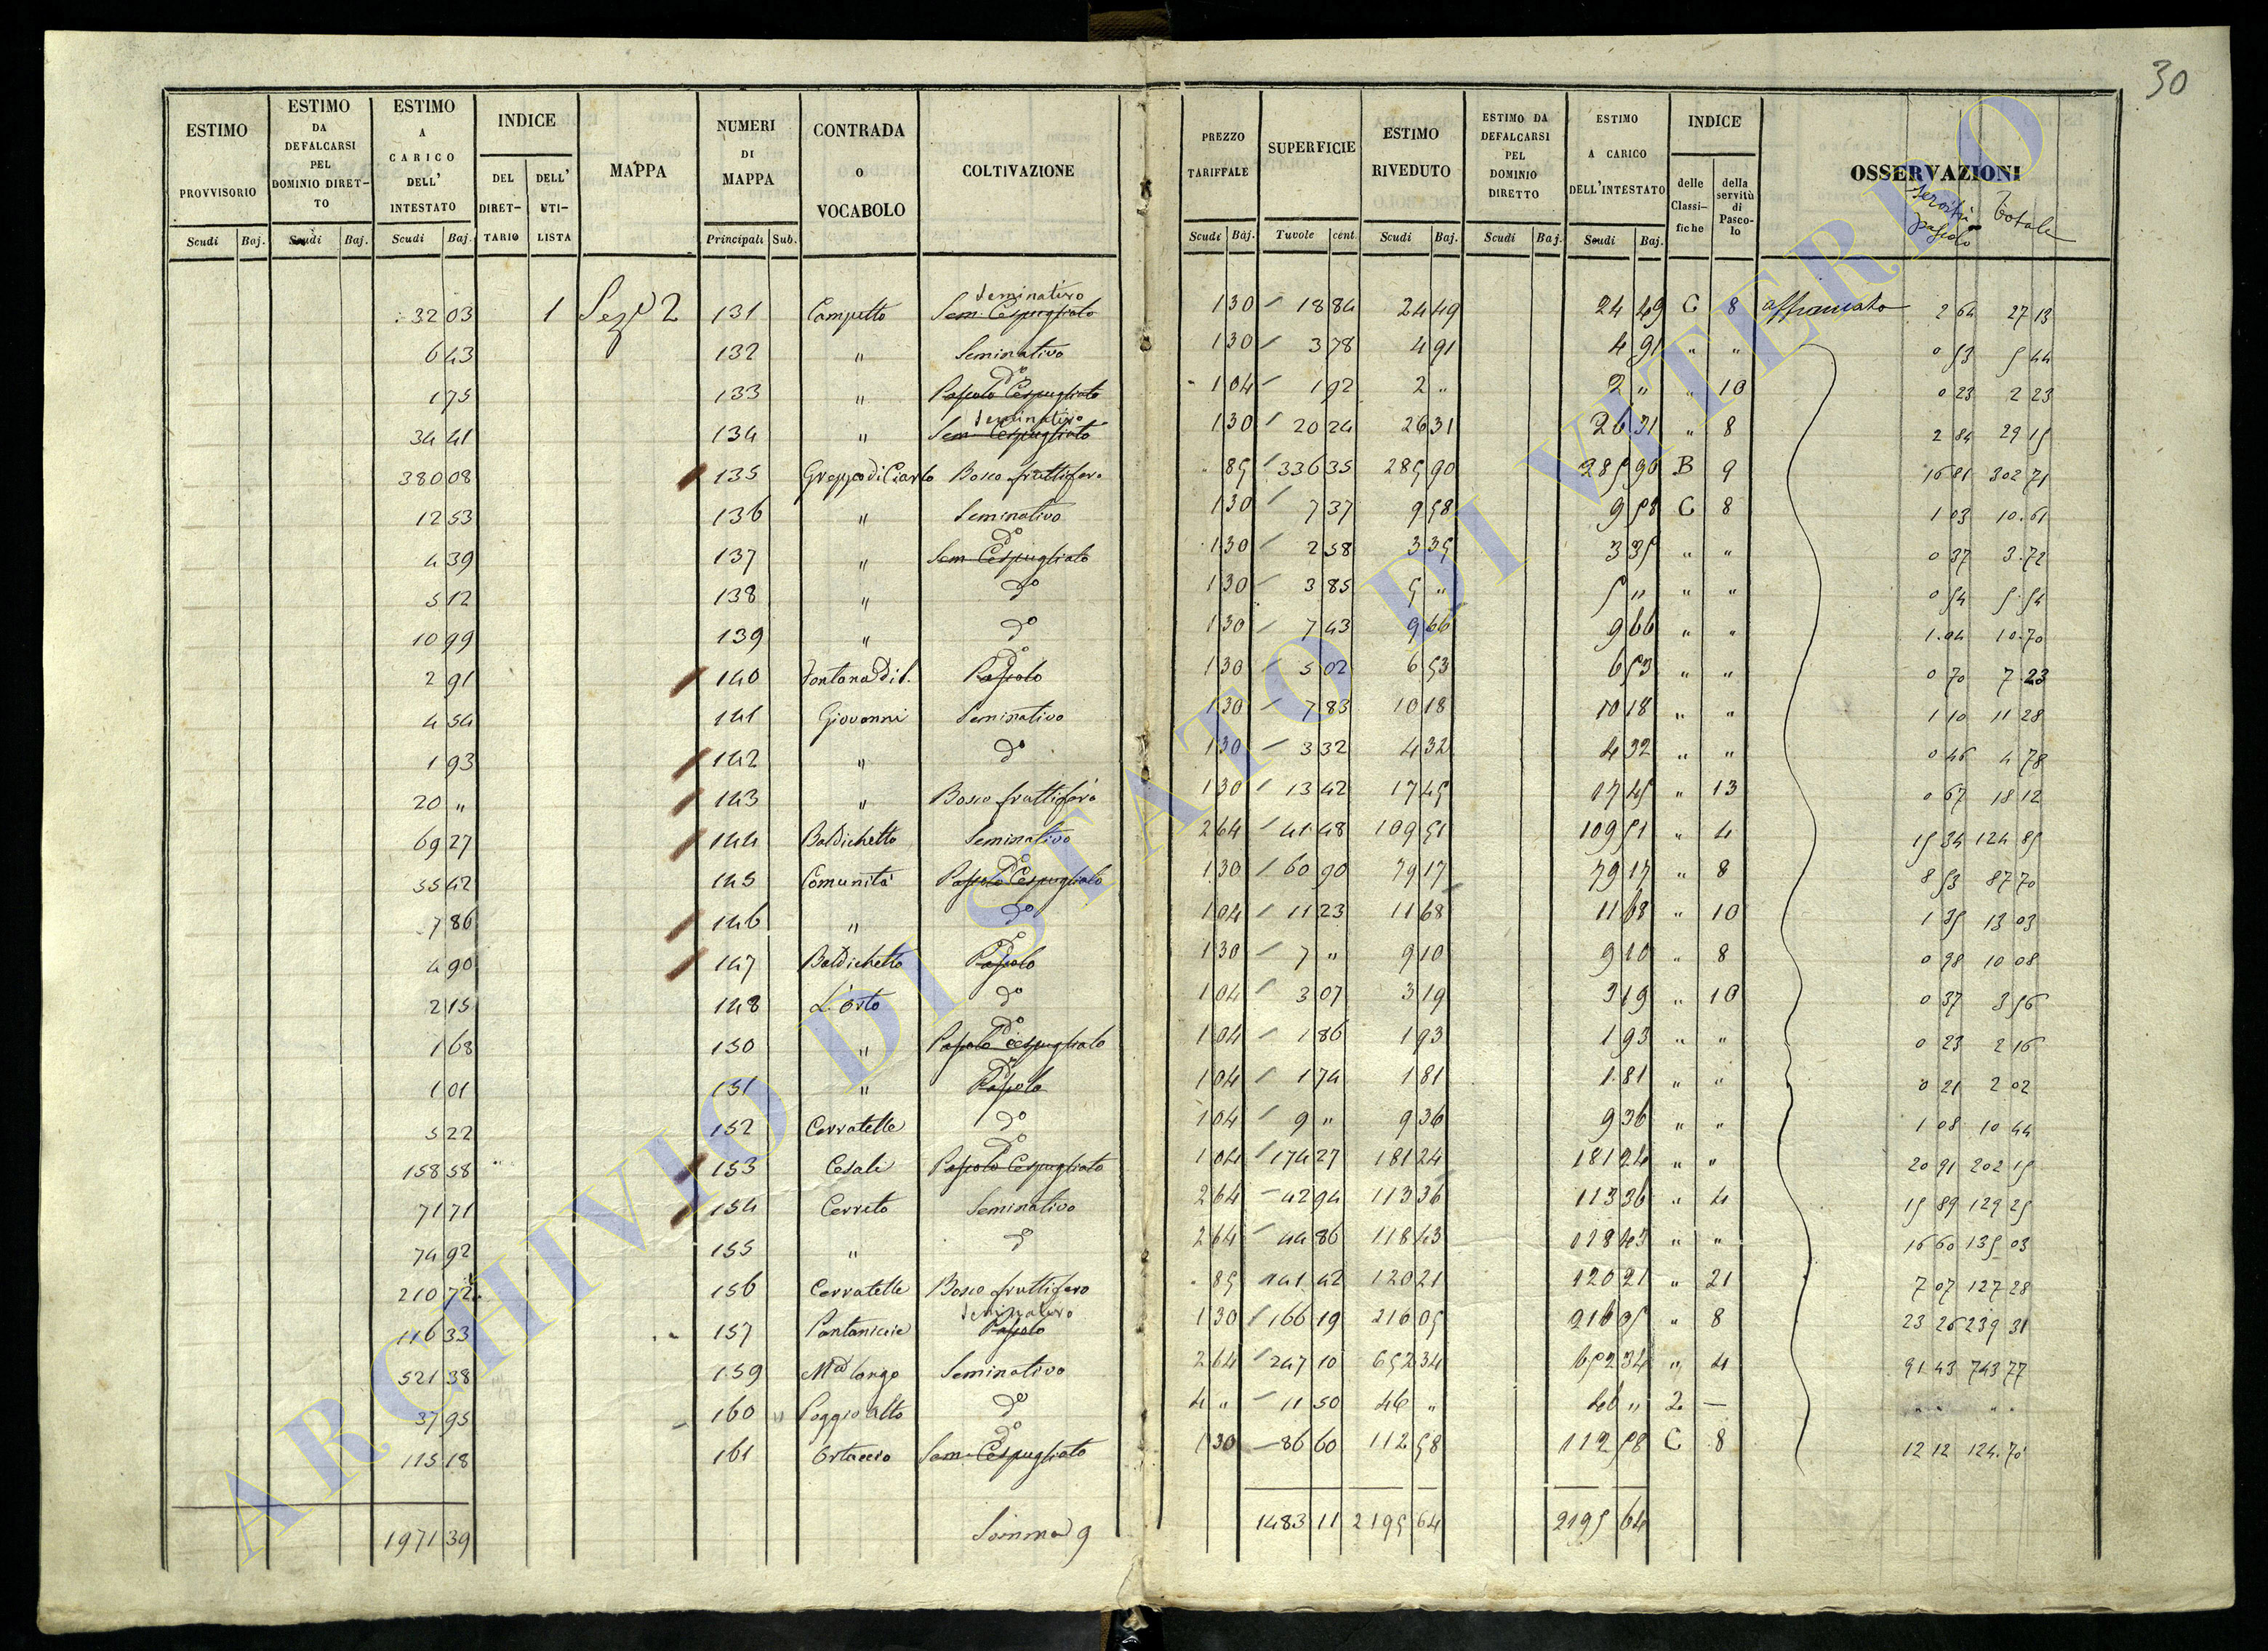 30
ESTIMO PROVVISORIO Scudi Baj.
ESTIMO DA DEFALCARSI PEL DOMINIO DIRETTO Scudi Baj.
ESTIMO A CARICO DELL' INTESTATO Scudi Baj.
INDICE DEL DIRETTARIO DELL' UTILISTA
MAPPA
NUMERI DI MAPPA Principali Sub.
CONTRADA o VOCABOLO
COLTIVAZIONE
PREZZO TARIFFALE Scudi Baj.
SUPERFICIE Tavole cent.
ESTIMO RIVEDUTO Scudi Baj.
ESTIMO DA DEFALCARSI PEL DOMINIO DIRETTO Scudi Baj.
ESTIMO A CARICO DELL'INTESTATO Scudi Baj.
INDICE delle Classifiche della servitù di Pascolo
OSSERVAZIONI
servitù pascolo Totale
32 03 1 Sez.e 2 131 Campetto Seminativo Sem. Cespugliato 1 30 18 84 24 49 24 49 C 8 affrancato 2 64 27 13
6 43 132 " Seminativo 1 30 3 78 4 91 4 91 " " 0 53 5 44
1 75 133 " do Pascolo Cespugliato 1 04 1 92 2 " 2 " " 10 0 23 2 23
34 41 134 " Seminativo Sem. Cespugliato 1 30 20 24 26 31 26 31 " 8 2 84 29 15
380 08 135 Greppo di Ciarlo Bosco fruttifero " 85 336 35 285 90 285 90 B 9 16 81 302 71
12 53 136 " Seminativo 1 30 7 37 9 58 9 58 C 8 1 03 10.61
4 39 137 " do Sem. Cespugliato 1 30 2 58 3 35 3 35 " " 0 37 3.72
5 12 138 " do 1 30 3 85 5 " 5 " " " 0 54 5.54
10 99 139 " do 1 30 7 43 9 66 9 66 " " 1.04 10.70
2 91 140 Fontana di S. do Pascolo 1 30 5 02 6 53 6 53 " " 0 70 7 23
4 54 141 Giovanni Seminativo 1 30 7 83 10 18 10 18 " " 1 10 11 28
1 93 142 " do 1 30 3 32 4 32 4 32 " " 0 46 4 78
20 " 143 " Bosco fruttifero 1 30 13 42 17 45 17 45 " 13 0 67 18 12
69 27 144 Baldichetto Seminativo 2 64 41 48 109 51 109 51 " 4 15 34 124 85
55 42 145 Comunità do Pascolo Cespugliato 1 30 60 90 79 17 79 17 " 8 8 53 87 70
7 86 146 " do 1 04 11 23 11 68 11 68 " 10 1 35 13 03
4 90 147 Baldichetto do Pascolo 1 30 7 " 9 10 9 10 " 8 0 98 10 08
2 15 148 L'Orto do 1 04 3 07 3 19 3 19 " 10 0 37 3 56
1 68 150 " do Pascolo Cespugliato 1 04 1 86 1 93 1 93 " " 0 23 2 16
1 01 151 " do Pascolo 1 04 1 74 1 81 1 81 " " 0 21 2 02
5 22 152 Cerratelle do 1 04 9 " 9 36 9 36 " " 1 08 10 44
158 58 153 Cesali do Pascolo Cespugliato 1 04 174 27 181 24 181 24 " " 20 91 202 15
71 71 154 Cerreto Seminativo 2 64 42 94 113 36 113 36 " 4 15 89 129 25
74 92 155 " do 2 64 44 86 118 43 118 43 " " 16 60 135 03
210 72 156 Cerratelle Bosco fruttifero " 85 141 42 120 21 120 21 " 21 7 07 127 28
116 33 157 Pantaniccie Seminativo Pascolo 1 30 166 19 216 05 216 05 " 8 23 26 239 31
521 38 159 Mta longa Seminativo 2 64 247 10 652 34 652 34 " 4 91 43 743 77
37 95 160 " Poggio Alto do 4 " 11 50 46 " 46 " 2 —
115 18 161 Ortaccio do Sem. Cespugliato 1 30 86 60 112 58 112 58 C 8 12 12 124.70
1971 39 Somma 9 1483 11 2195 64 2195 64
ARCHIVIO DI STATO DI VITERBO